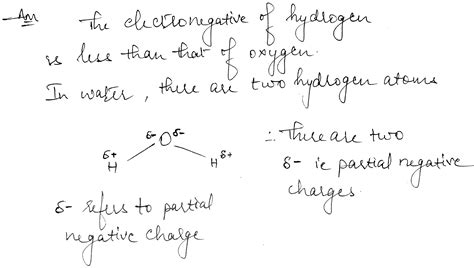 Ans The electronegative of hydrogen
is less than that of oxygen.
In water, there are two hydrogen atoms
δ- O δ-
δ+ H H δ+
∴ There are two
δ- ie partial negative
charges.
δ- refers to partial
negative charge